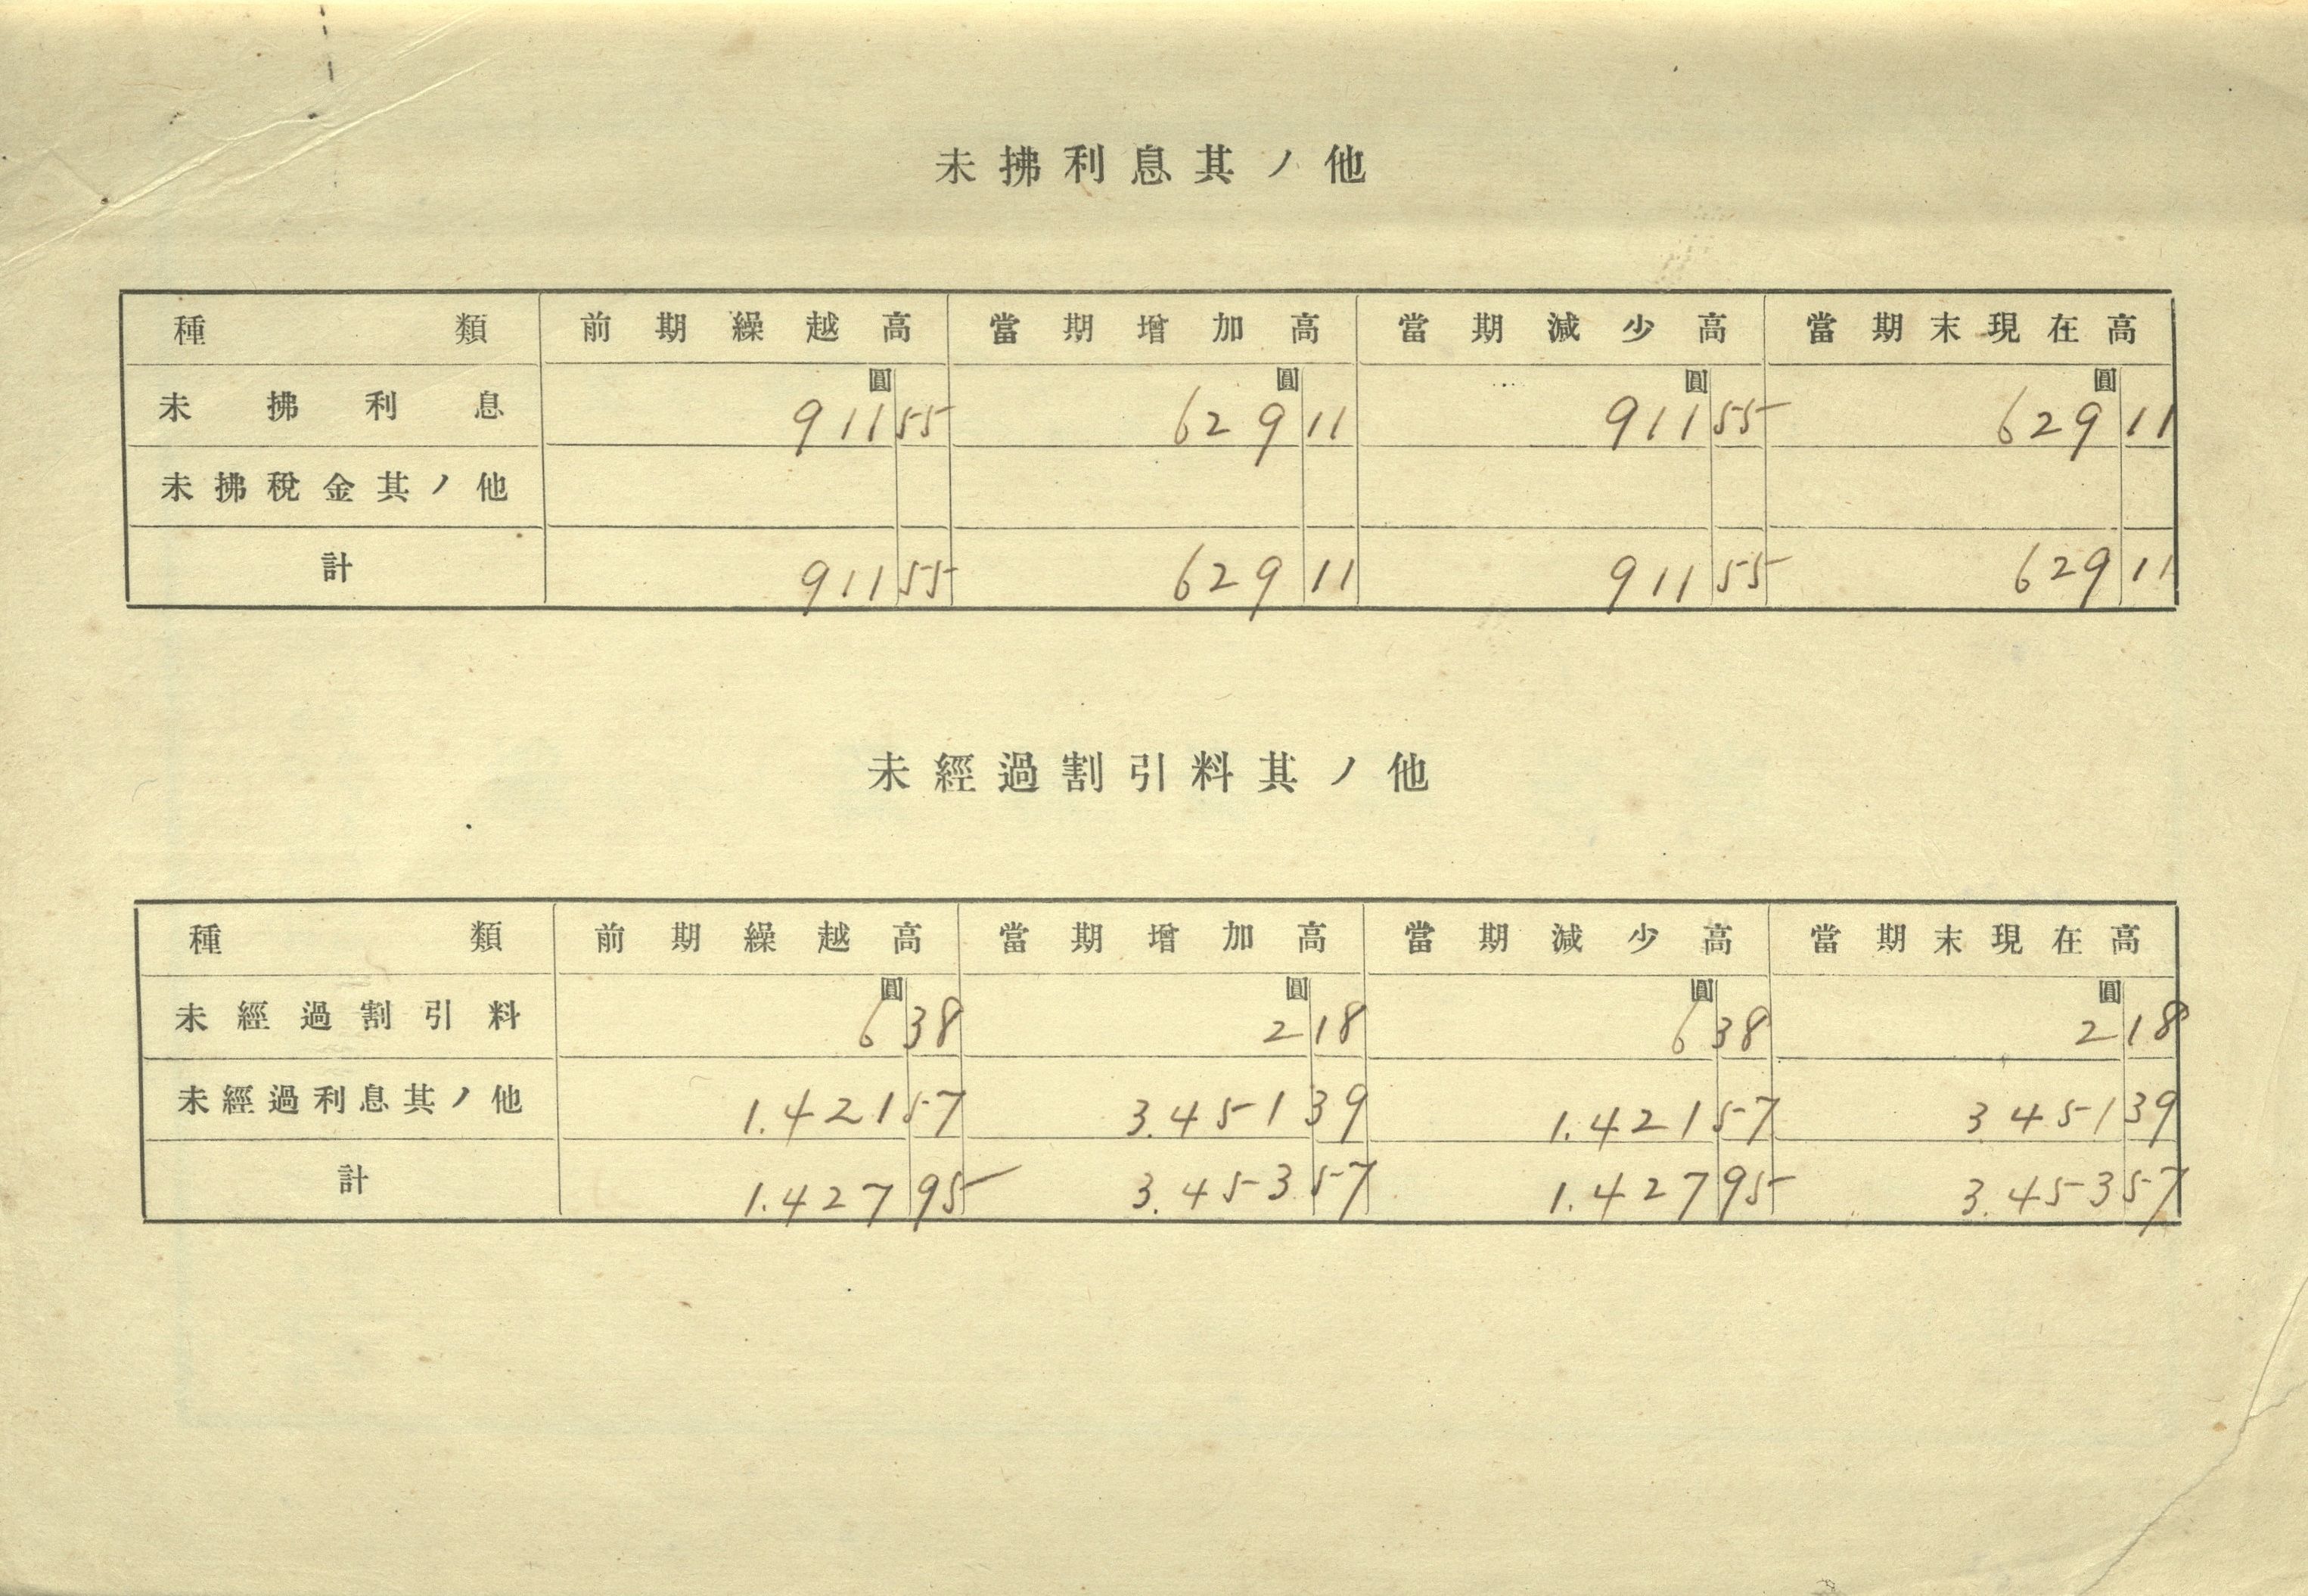 未拂利息其ノ他
種類 前期繰越高 當期增加高 當期減少高 當期末現在高
圓 圓 圓 圓
未拂利息 911 55 629 11 911 55 629 11
未拂稅金其ノ他
計 911 55 629 11 911 55 629 11
未經過割引料其ノ他
種類 前期繰越高 當期增加高 當期減少高 當期末現在高
圓 圓 圓 圓
未經過割引料 6 38 2 18 6 38 2 18
未經過利息其ノ他 1.421 57 3.451 39 1.421 57 3 451 39
計 1.427 95 3.453 57 1.427 95 3.453 57